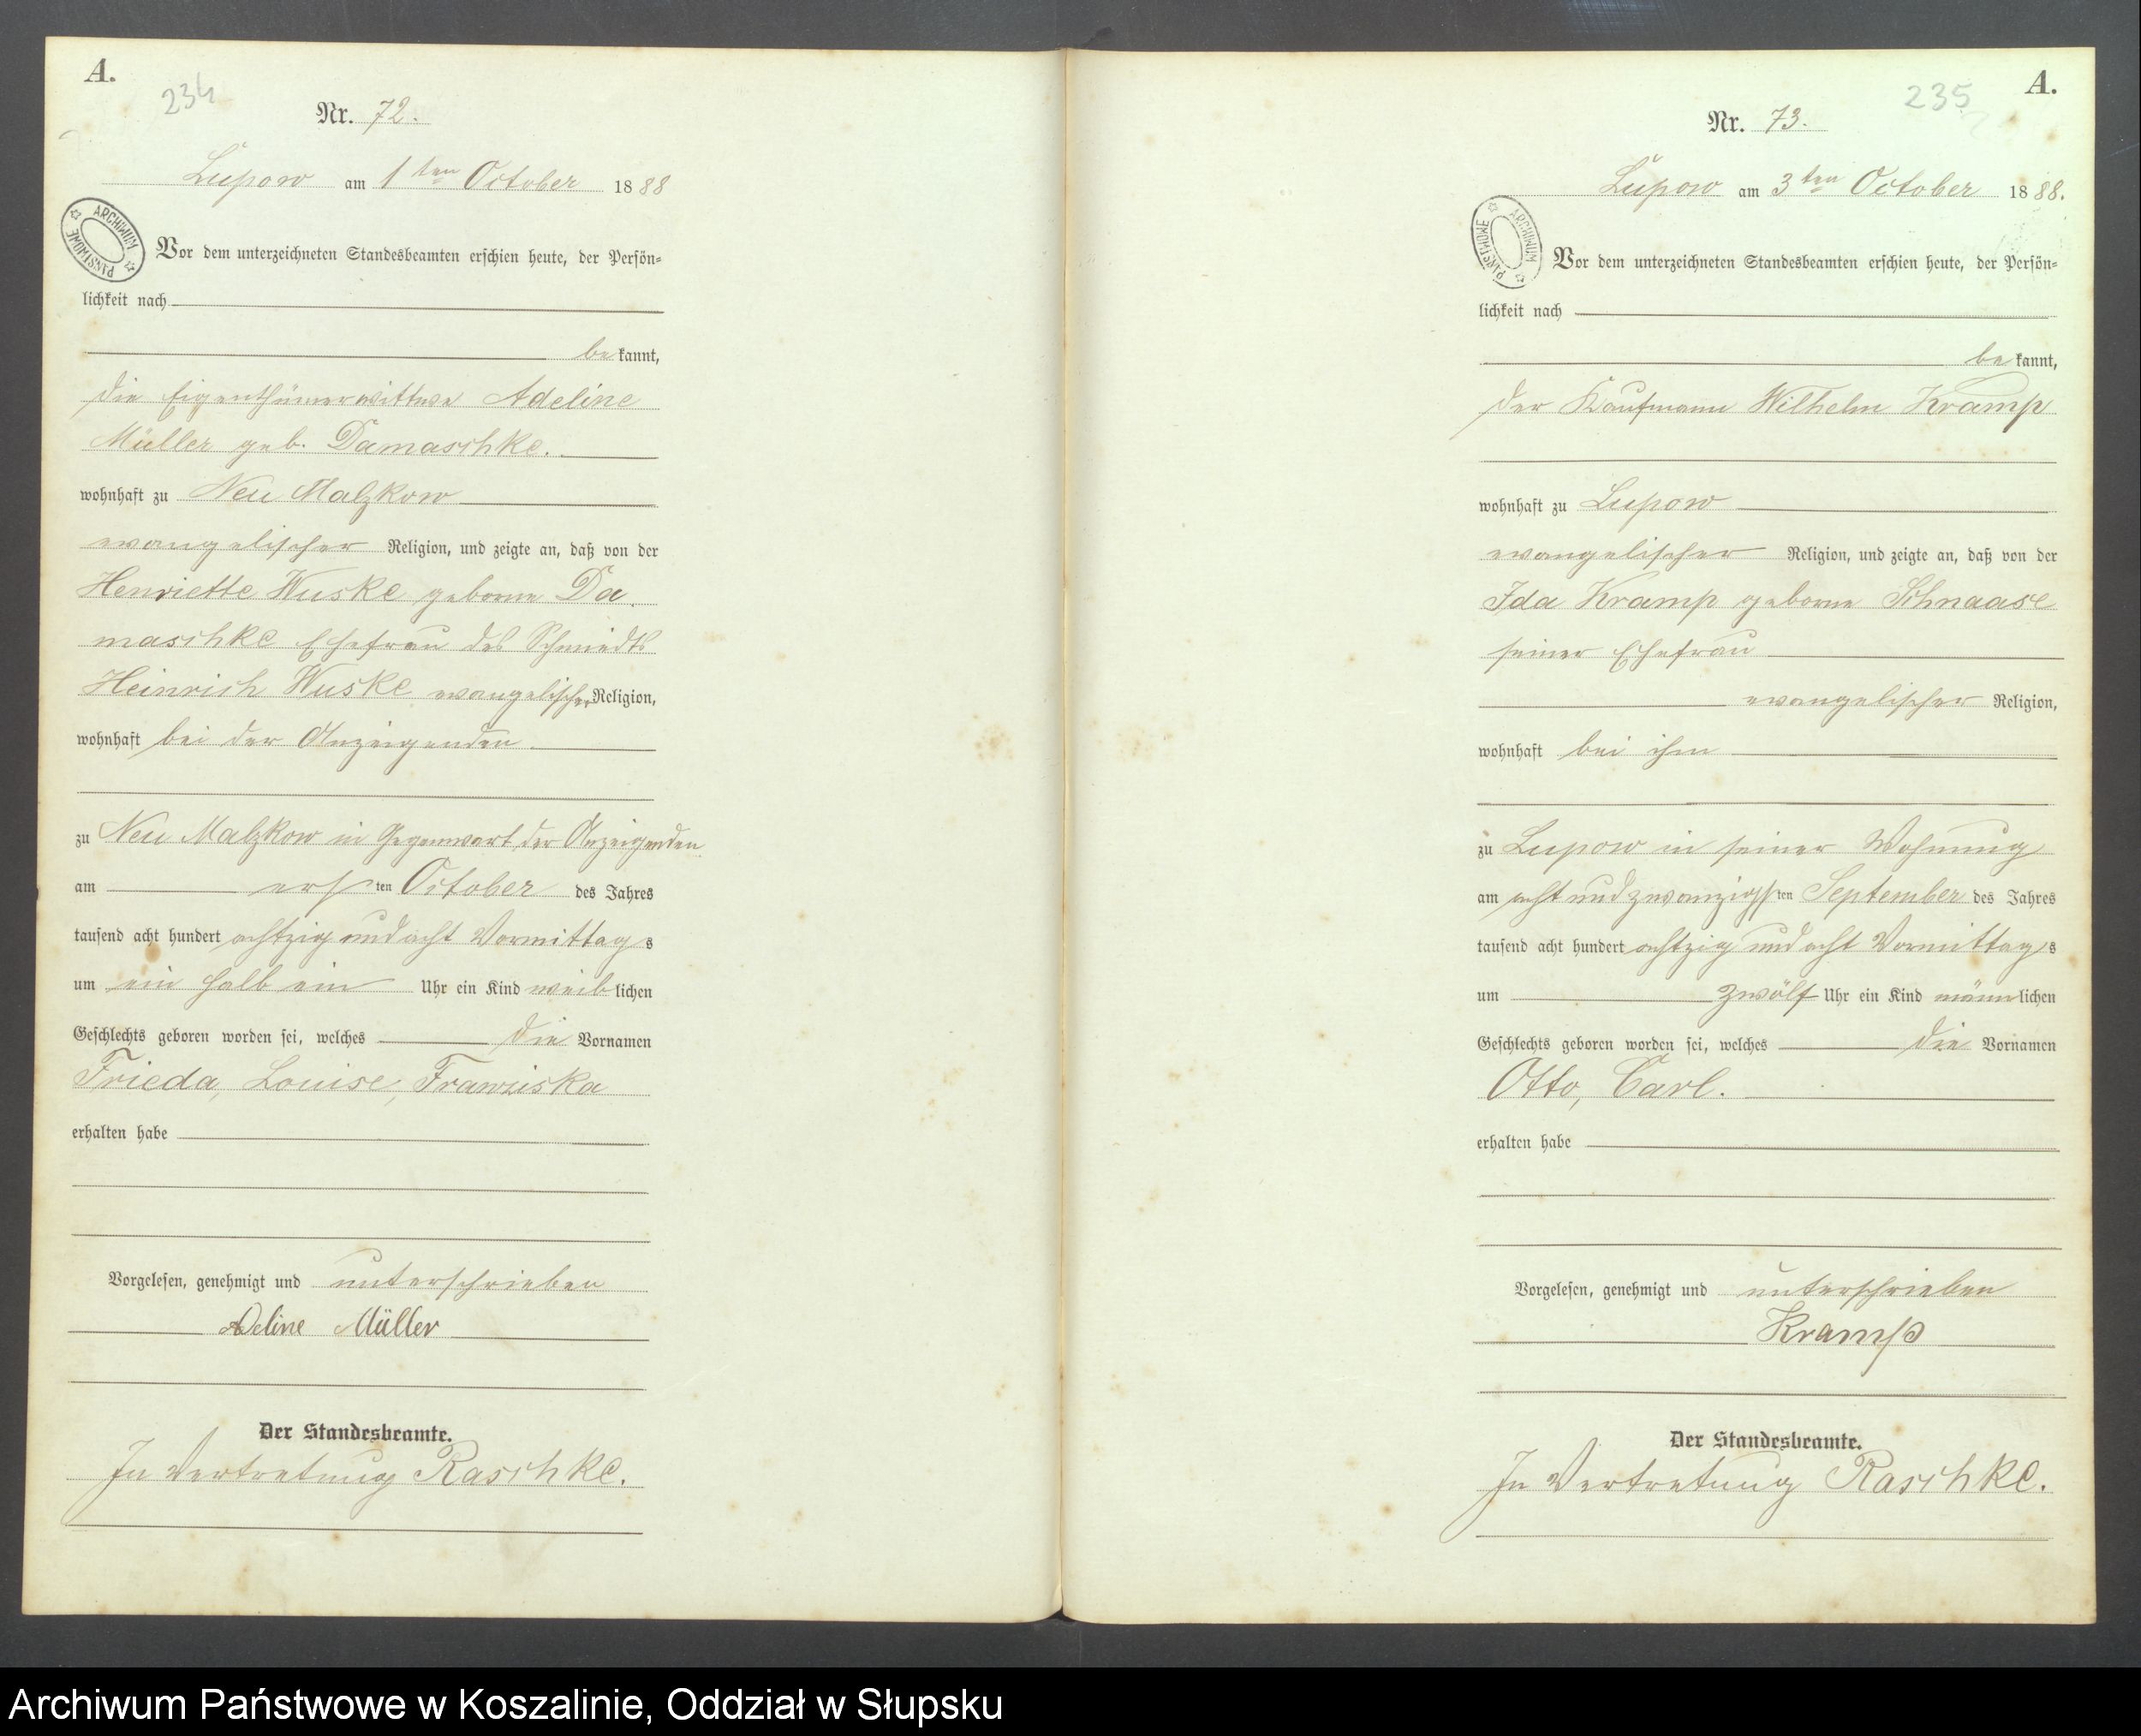 A.
234
Nr. 72.
Lupow am 1ten October 1888
ARCHIWUM PAŃSTWOWE
Vor dem unterzeichneten Standesbeamten erschien heute, der Persön=
lichkeit nach
bekannt,
die Eigenthümerwittwe Adeline
Müller geb. Damaschke.
wohnhaft zu Neu Malzkow
evangelischer Religion, und zeigte an, daß von der
Henriette Wuske geborne Da
maschke Ehefrau des Schmieds
Heinrich Wuske evangelischer Religion,
wohnhaft bei der Anzeigenden
zu Neu Malzkow in Gegenwart der Anzeigenden
am ersten October des Jahres
tausend acht hundert achtzig und acht Vormittags
um ein halb ein Uhr ein Kind weiblichen
Geschlechts geboren worden sei, welches die Vornamen
Frieda, Louise, Franziska
erhalten habe
Vorgelesen, genehmigt und unterschrieben
Adeline Müller
Der Standesbeamte.
In Vertretung Raschke.
A.
235
Nr. 73.
Lupow am 3ten October 1888.
ARCHIWUM PAŃSTWOWE
Vor dem unterzeichneten Standesbeamten erschien heute, der Persön=
lichkeit nach
bekannt,
der Kaufmann Wilhelm Kramp
wohnhaft zu Lupow
evangelischer Religion, und zeigte an, daß von der
Ida Kramp geborne Schnaase
seiner Ehefrau
evangelischer Religion,
wohnhaft bei ihm
zu Lupow in seiner Wohnung
am acht und zwanzigsten September des Jahres
tausend acht hundert achtzig und acht Vormittags
um zwölf Uhr ein Kind männlichen
Geschlechts geboren worden sei, welches die Vornamen
Otto, Carl.
erhalten habe
Vorgelesen, genehmigt und unterschrieben
Kramp
Der Standesbeamte.
In Vertretung Raschke.
Archiwum Państwowe w Koszalinie, Oddział w Słupsku